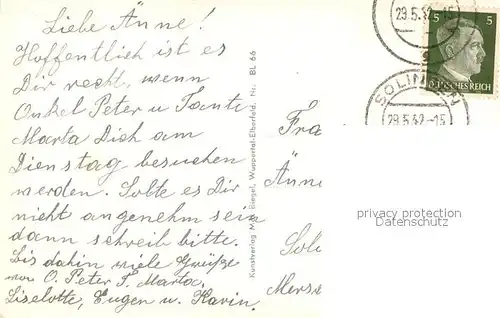 Liebe Änne!
Hoffentlich ist es
Dir recht, wenn
Onkel Peter u Tante
Marta Dich am
Dienstag besuchen
werden. Sollte es Dir
nicht angenehm sein
dann schreib bitte.
Bis dahin viele Grüße
von O. Peter T. Marta,
Liselotte, Eugen u. Karin.
Kunstverlag M. Biegel, Wuppertal-Elberfeld, Nr. Bl. 66
29.5.42-15
5 5
DEUTSCHES REICH
SOLINGEN
29.5.42-15
Fra
Änne
Sol
privacy protection
Datenschutz